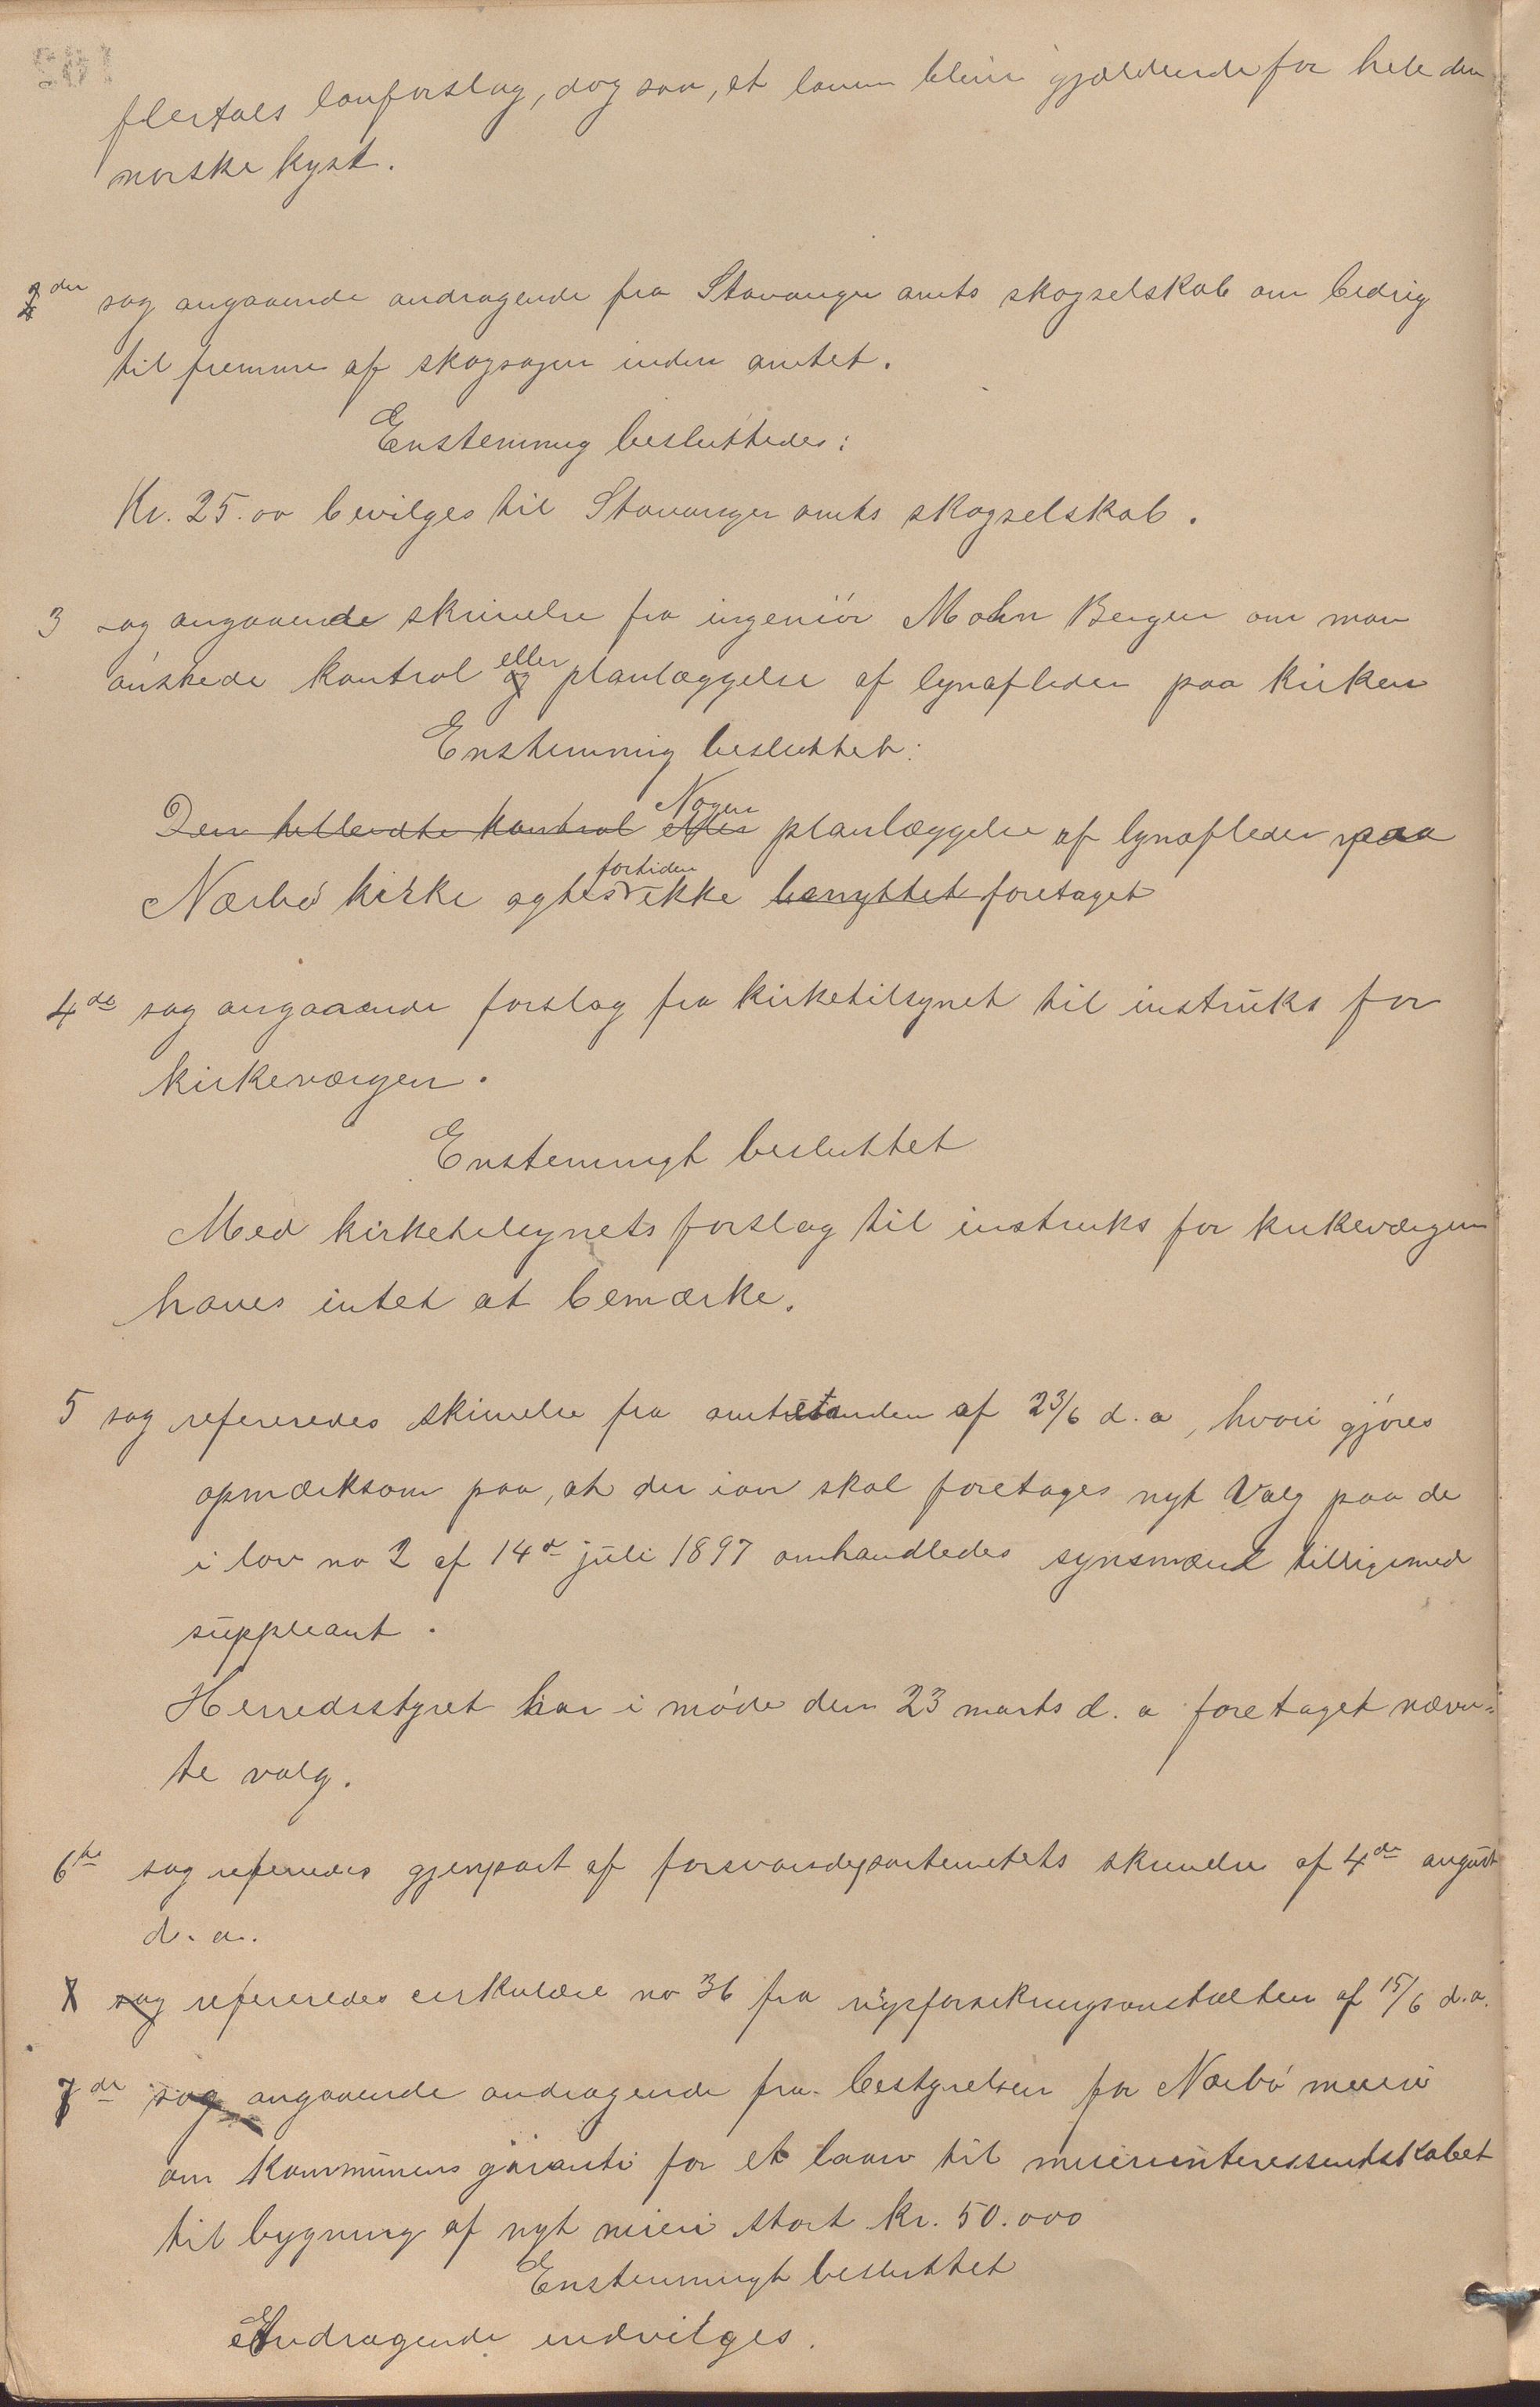 flertals lovforslag, dog saa, at loven bliver gjældende for hele den
norske kyst.
2den sag angaaende andragende fra Stavanger amts skogselskab om bedrig
til fremme af skogsagen inden amtet.
Enstemmig besluttedes:
Kr. 25.00 bevilges til Stavanger amts skogselskab.
3 sag angaaende skrivelse fra ingeniör Mohn Bergen om man
önskede kontrol og eller planlæggelse af lynafleder paa kirken
Enstemmig besluttet:
Den tilbudte kontrol eller Nogen planlæggelse af lynafleder paa
Nærbö kirke agtes fortiden ikke benyttet foretaget
4de sag angaaende forslag fra kirketilsynet til instruks for
kirkeværgen.
Enstemmigt besluttet
Med kirketilsynets forslag til instruks for kirkeværgen
haves intet at bemærke.
5 sag refereredes skrivelse fra amtmanden af 23/6 d.a, hvori gjöres
opmærksom paa, at der iaar skal foretages nyt Valg paa de
i lov no 2 af 14de juli 1897 omhandledes synsmænd tilligemed
suppleant.
Herredsstyret har i möde den 23 marts d.a foretaget nævn-
te valg.
6te sag refereredes gjenpart af forsvarsdepartemetets skrivelse af 4de august
d.a.
X sag refereredes cirkulære no 36 fra rigsforsikringsanstalten af 15/6 d.a.
7de sag angaaende andragende fra bestyrelsen for Nærbö meieri
om kommunens garanti for et laan til meieriinteressentskabet
til bygning af nyt meieri stort kr. 50.000
Enstemmigt besluttet
Andragende indvilges.